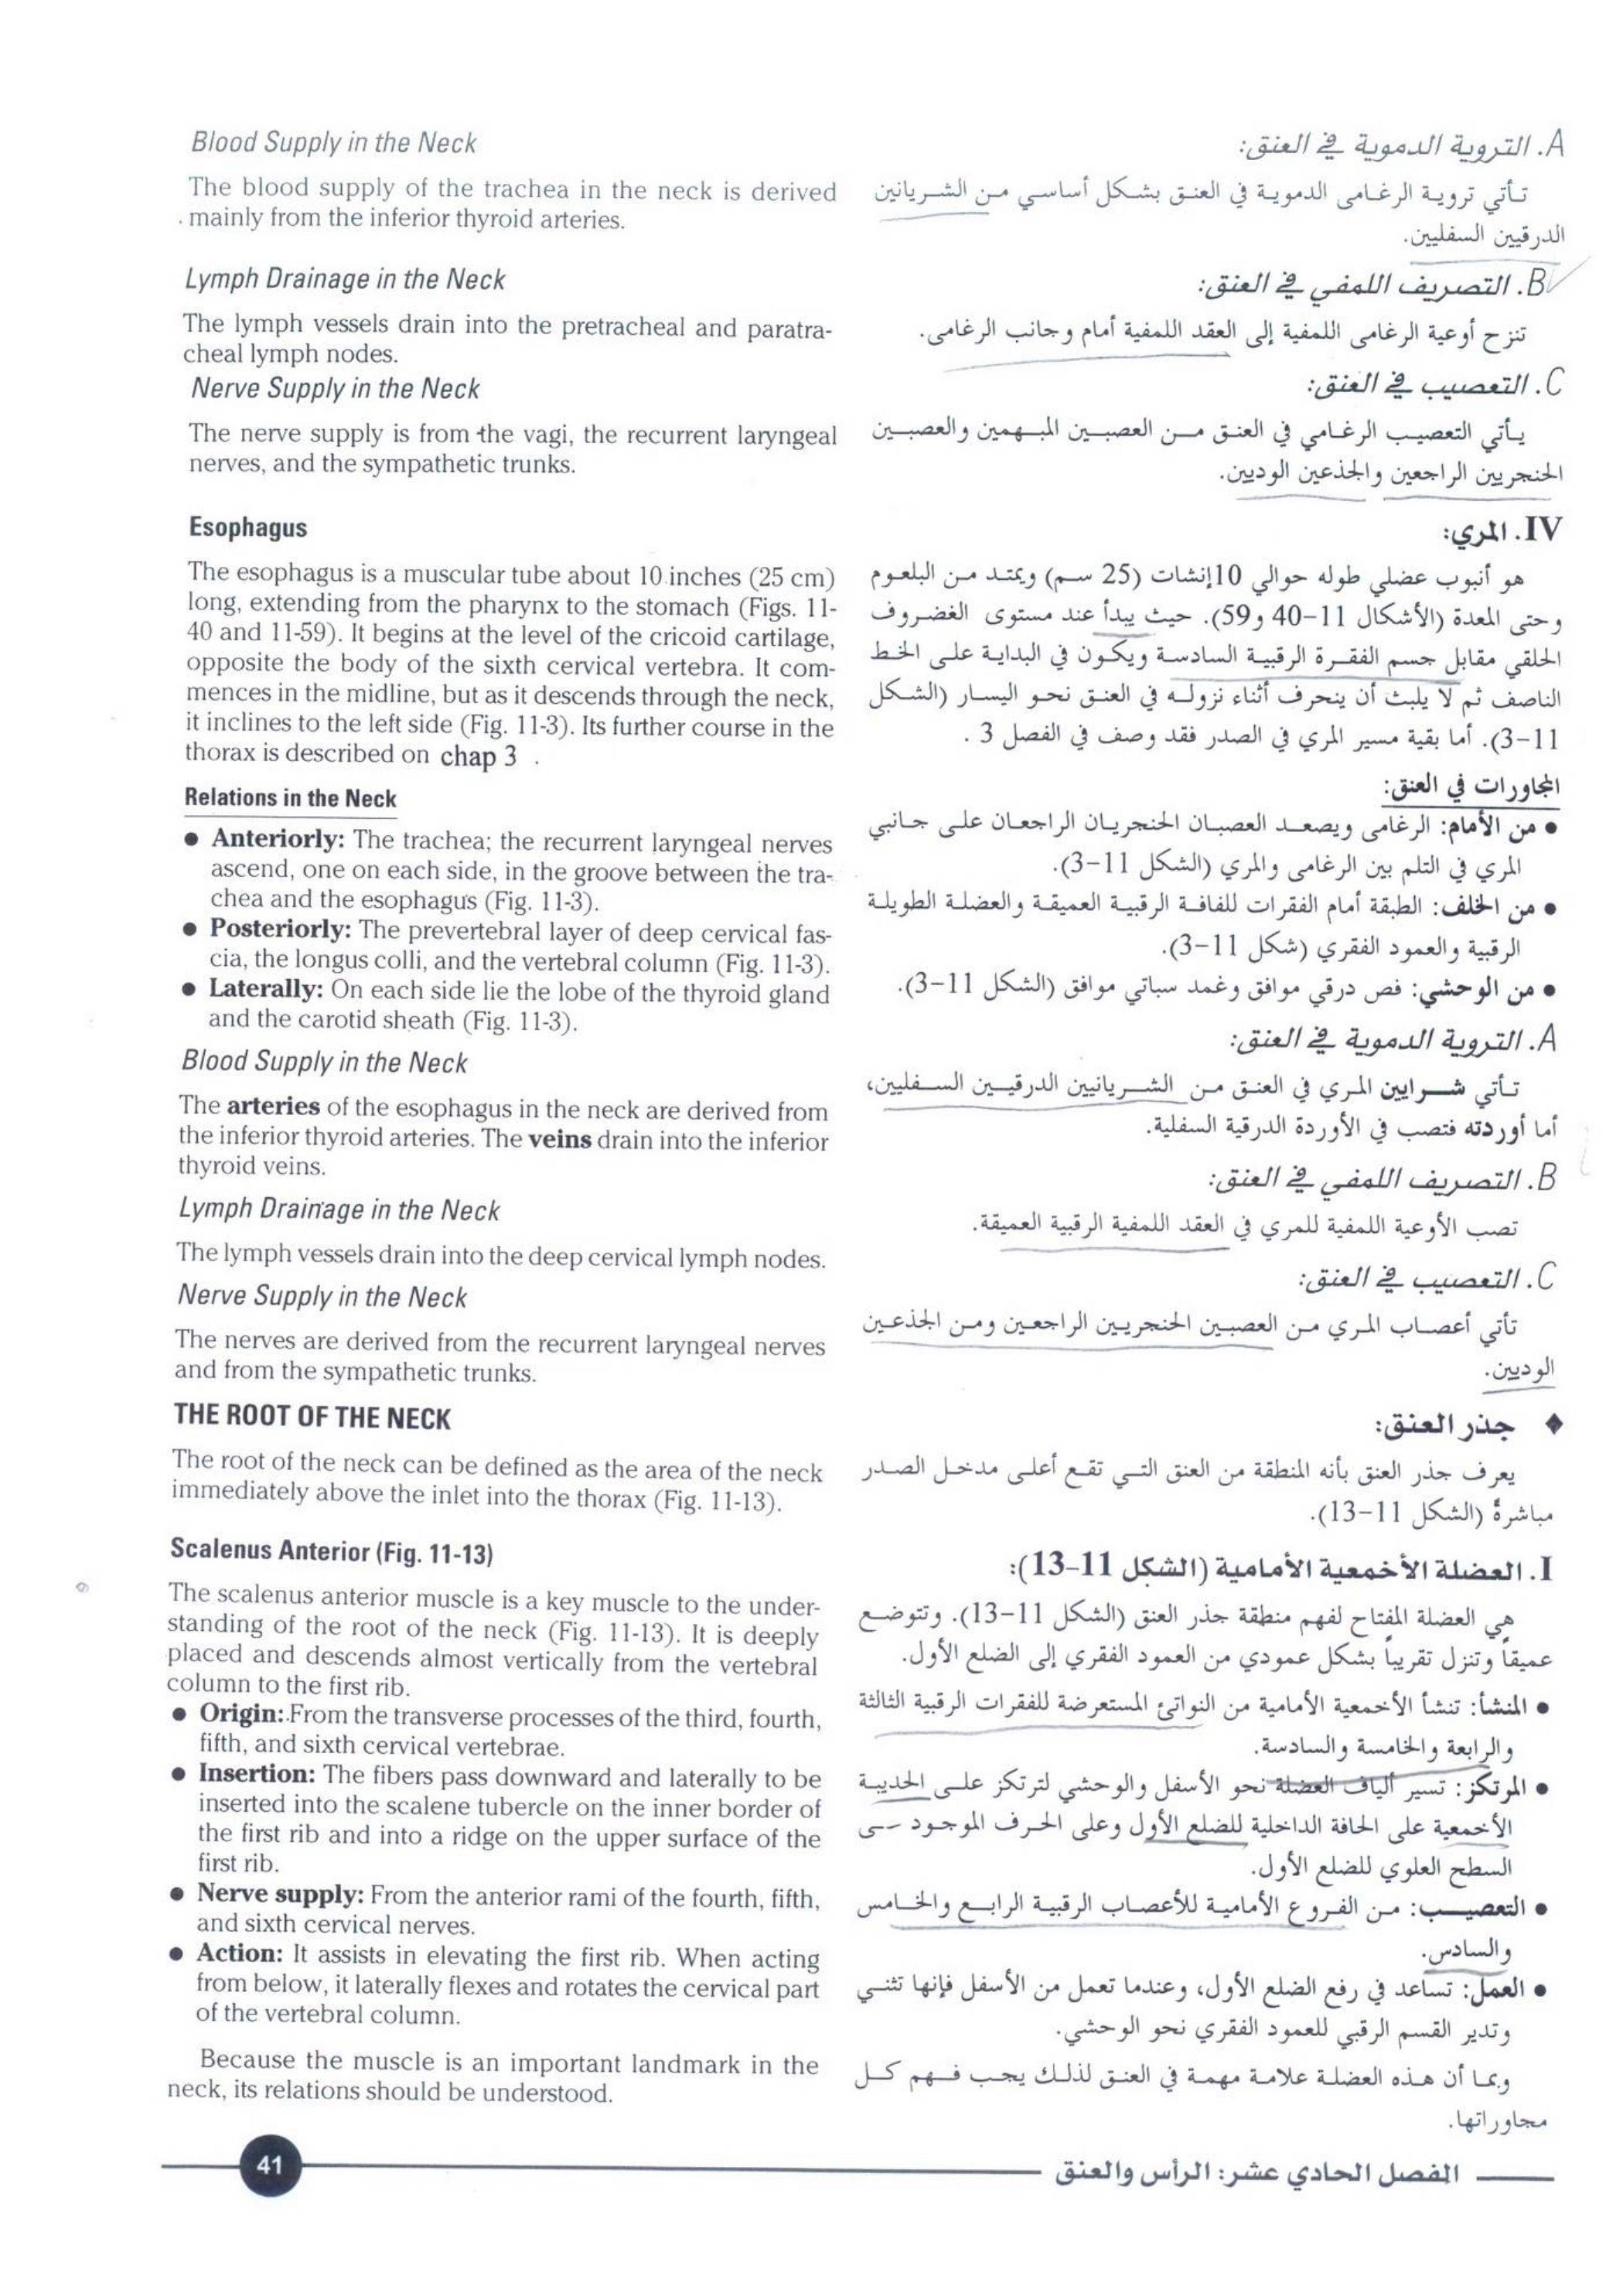 Blood Supply in the Neck
The blood supply of the trachea in the neck is derived
mainly from the inferior thyroid arteries.
Lymph Drainage in the Neck
The lymph vessels drain into the pretracheal and paratra-
cheal lymph nodes.
Nerve Supply in the Neck
The nerve supply is from the vagi, the recurrent laryngeal
nerves, and the sympathetic trunks.
Esophagus
The esophagus is a muscular tube about 10 inches (25 cm)
long, extending from the pharynx to the stomach (Figs. 11-
40 and 11-59). It begins at the level of the cricoid cartilage,
opposite the body of the sixth cervical vertebra. It com-
mences in the midline, but as it descends through the neck,
it inclines to the left side (Fig. 11-3). Its further course in the
thorax is described on chap 3 .
Relations in the Neck
● Anteriorly: The trachea; the recurrent laryngeal nerves
ascend, one on each side, in the groove between the tra-
chea and the esophagus (Fig. 11-3).
● Posteriorly: The prevertebral layer of deep cervical fas-
cia, the longus colli, and the vertebral column (Fig. 11-3).
● Laterally: On each side lie the lobe of the thyroid gland
and the carotid sheath (Fig. 11-3).
Blood Supply in the Neck
The arteries of the esophagus in the neck are derived from
the inferior thyroid arteries. The veins drain into the inferior
thyroid veins.
Lymph Drainage in the Neck
The lymph vessels drain into the deep cervical lymph nodes.
Nerve Supply in the Neck
The nerves are derived from the recurrent laryngeal nerves
and from the sympathetic trunks.
THE ROOT OF THE NECK
The root of the neck can be defined as the area of the neck
immediately above the inlet into the thorax (Fig. 11-13).
Scalenus Anterior (Fig. 11-13)
The scalenus anterior muscle is a key muscle to the under-
standing of the root of the neck (Fig. 11-13). It is deeply
placed and descends almost vertically from the vertebral
column to the first rib.
● Origin: From the transverse processes of the third, fourth,
fifth, and sixth cervical vertebrae.
● Insertion: The fibers pass downward and laterally to be
inserted into the scalene tubercle on the inner border of
the first rib and into a ridge on the upper surface of the
first rib.
● Nerve supply: From the anterior rami of the fourth, fifth,
and sixth cervical nerves.
● Action: It assists in elevating the first rib. When acting
from below, it laterally flexes and rotates the cervical part
of the vertebral column.
Because the muscle is an important landmark in the
neck, its relations should be understood.
A. التروية الدموية في العنق:
تأتي تروية الرغامى الدموية في العنق بشكل أساسي من الشريانين
الدرقيين السفليين.
B. التصريف اللمفي في العنق:
تنزح أوعية الرغامى اللمفية إلى العقد اللمفية أمام وجانب الرغامى.
C. التعصيب في العنق:
يأتي التعصيب الرغامي في العنق من العصبين المبهمين والعصبين
الحنجريين الراجعين والجذعين الوديين.
IV. المري:
هو أنبوب عضلي طوله حوالي 10إنشات (25 سم) ويمتد من البلعوم
وحتى المعدة (الأشكال 11-40 و59). حيث يبدأ عند مستوى الغضروف
الحلقي مقابل جسم الفقرة الرقبية السادسة ويكون في البداية على الخط
الناصف ثم لا يلبث أن ينحرف أثناء نزوله في العنق نحو اليسار (الشكل
11-3). أما بقية مسير المري في الصدر فقد وصف في الفصل 3 .
المجاورات في العنق:
● من الأمام: الرغامى ويصعد العصبان الحنجريان الراجعان على جانبي
المري في التلم بين الرغامى والمري (الشكل 11-3).
● من الخلف: الطبقة أمام الفقرات للفافة الرقبية العميقة والعضلة الطويلة
الرقبية والعمود الفقري (شكل 11-3).
● من الوحشي: فص درقي موافق وغمد سباتي موافق (الشكل 11-3).
A. التروية الدموية في العنق:
تأتي شرايين المري في العنق من الشريانيين الدرقيين السفليين،
أما أوردته فتصب في الأوردة الدرقية السفلية.
B. التصريف اللمفي في العنق:
تصب الأوعية اللمفية للمري في العقد اللمفية الرقبية العميقة.
C. التعصيب في العنق:
تأتي أعصاب المري من العصبين الحنجريين الراجعين ومن الجذعين
الوديين.
♦ جذر العنق:
يعرف جذر العنق بأنه المنطقة من العنق التي تقع أعلى مدخل الصدر
مباشرةً (الشكل 11-13).
I. العضلة الأخمعية الأمامية (الشكل 11-13):
هي العضلة المفتاح لفهم منطقة جذر العنق (الشكل 11-13). وتتوضع
عميقاً وتنزل تقريباً بشكل عمودي من العمود الفقري إلى الضلع الأول.
● المنشأ: تنشأ الأخمعية الأمامية من النواتئ المستعرضة للفقرات الرقبية الثالثة
والرابعة والخامسة والسادسة.
● المرتكز: تسير ألياف العضلة نحو الأسفل والوحشي لترتكز على الحديبة
الأخمعية على الحافة الداخلية للضلع الأول وعلى الحرف الموجود
السطح العلوي للضلع الأول.
● التعصيب: من الفروع الأمامية للأعصاب الرقبية الرابع والخامس
والسادس.
● العمل: تساعد في رفع الضلع الأول، وعندما تعمل من الأسفل فإنها تثني
وتدير القسم الرقبي للعمود الفقري نحو الوحشي.
وبما أن هذه العضلة علامة مهمة في العنق لذلك يجب فهم كل
مجاوراتها.
41
الفصل الحادي عشر: الرأس والعنق